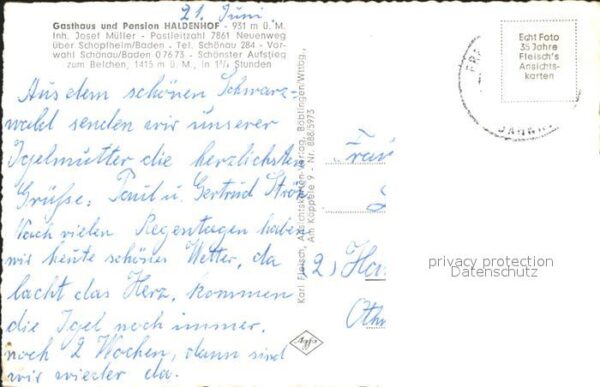 21. Juni
Gasthaus und Pension HALDENHOF - 931 m ü. M.
Inh. Josef Müller - Postleitzahl 7861 Neuenweg
über Schopfheim/Baden - Tel. Schönau 284 - Vor-
wahl Schönau/Baden 07673 - Schönster Aufstieg
zum Belchen, 1415 m ü. M., in 1¾ Stunden
Aus dem schönen Schwarz-
wald senden wir unserer
Igelmutter die herzlichsten
Grüße: Paul u. Gertrud
Nach vielen Regentagen haben
wir heute schönes Wetter, da
lacht das Herz, kommen
die Igel noch immer.
noch 2 Wochen, dann sind
wir wieder da.
Karl Fleisch, Ansichtskarten-Verlag, Böblingen/Wttbg.,
Am Käppele 9 - Nr. 888/5973
Echt Foto
35 Jahre
Fleisch's
Ansichts-
karten
2)
privacy protection
Datenschutz